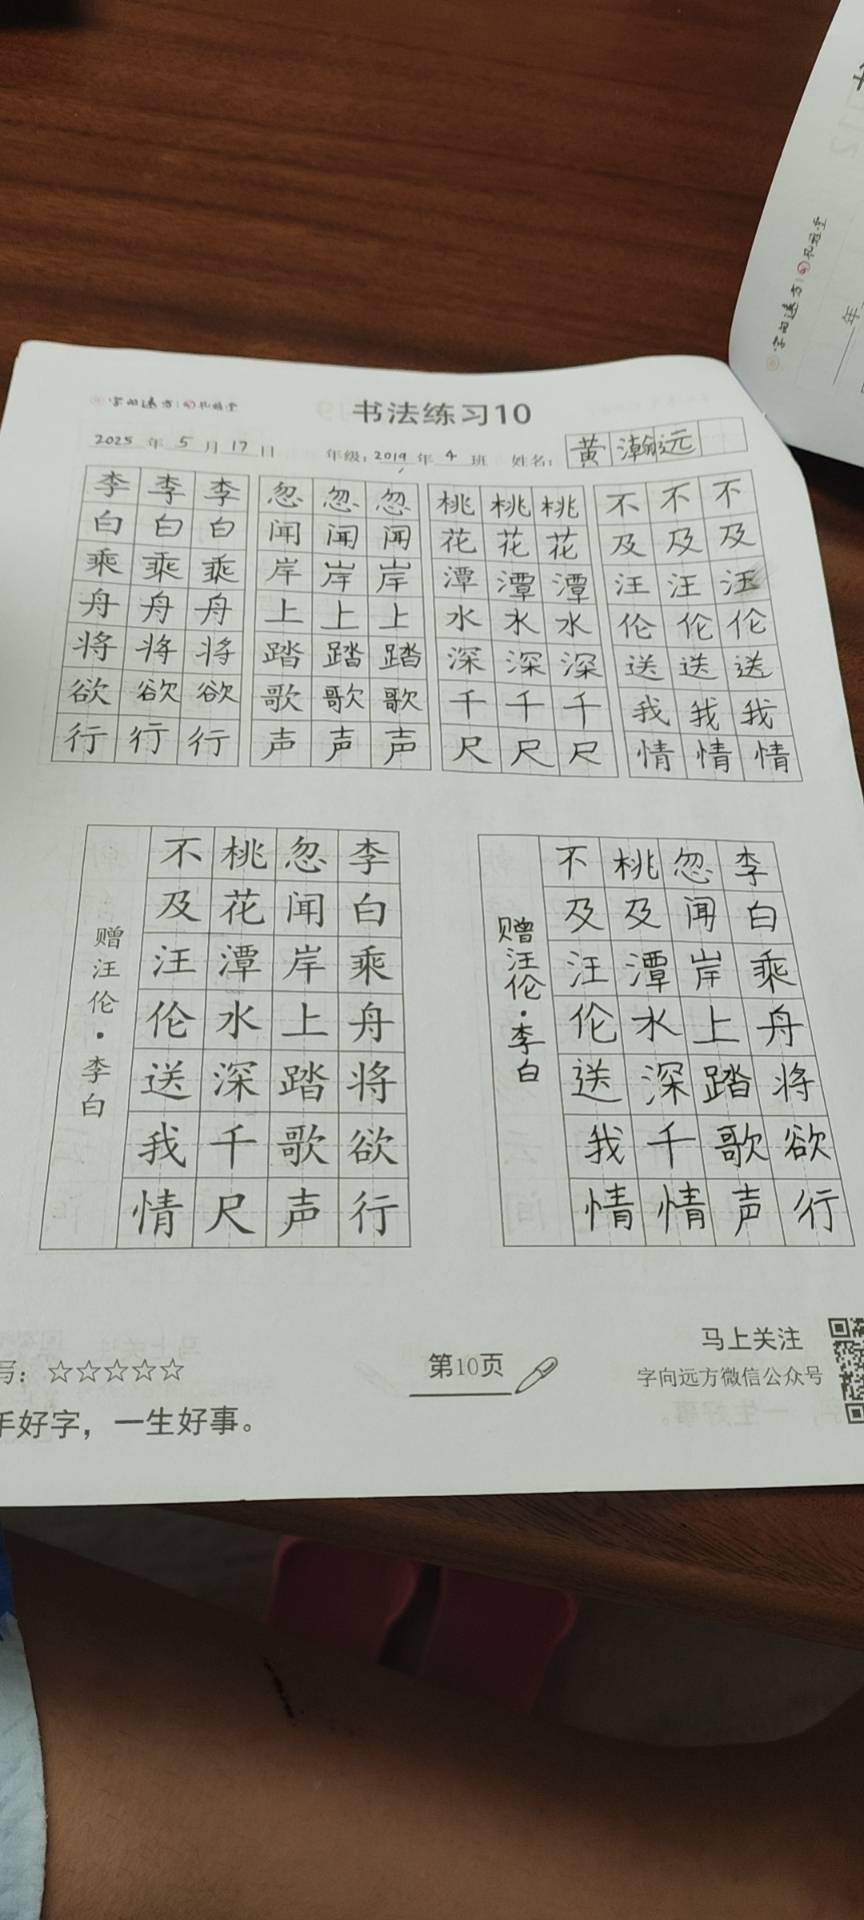 字向远方 孔雅堂
书法练习10
2025年5月17日 年级:2019年4班 姓名:黄瀚远
李李李 忽忽忽 桃桃桃 不不不
白白白 闻闻闻 花花花 及及及
乘乘乘 岸岸岸 潭潭潭 汪汪汪
舟舟舟 上上上 水水水 伦伦伦
将将将 踏踏踏 深深深 送送送
欲欲欲 歌歌歌 千千千 我我我
行行行 声声声 尺尺尺 情情情
李白乘舟将欲行
忽闻岸上踏歌声
桃花潭水深千尺
不及汪伦送我情
赠汪伦·李白
李白乘舟将欲行
忽闻岸上踏歌声
桃及潭水深千情
不及汪伦送我情
赠汪伦·李白
写:☆☆☆☆☆
手好字，一生好事。
第10页
马上关注
字向远方微信公众号
字向远方 孔雅堂
年